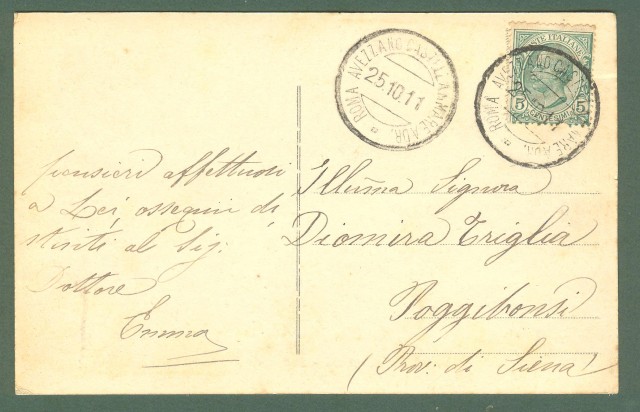 POSTE ITALIANE
5 5
CENTESIMI
ROMA AVEZZANO CASTELLAMMARE ADR.
25.10.11
ROMA AVEZZANO CAS MARE ADR.
pensieri affettuosi
a Lei, ossequi di
stinti al Sig.
Dottore
Emma
Illuma Signora
Diomira Triglia
Poggibonsi
(Prov: di Siena)